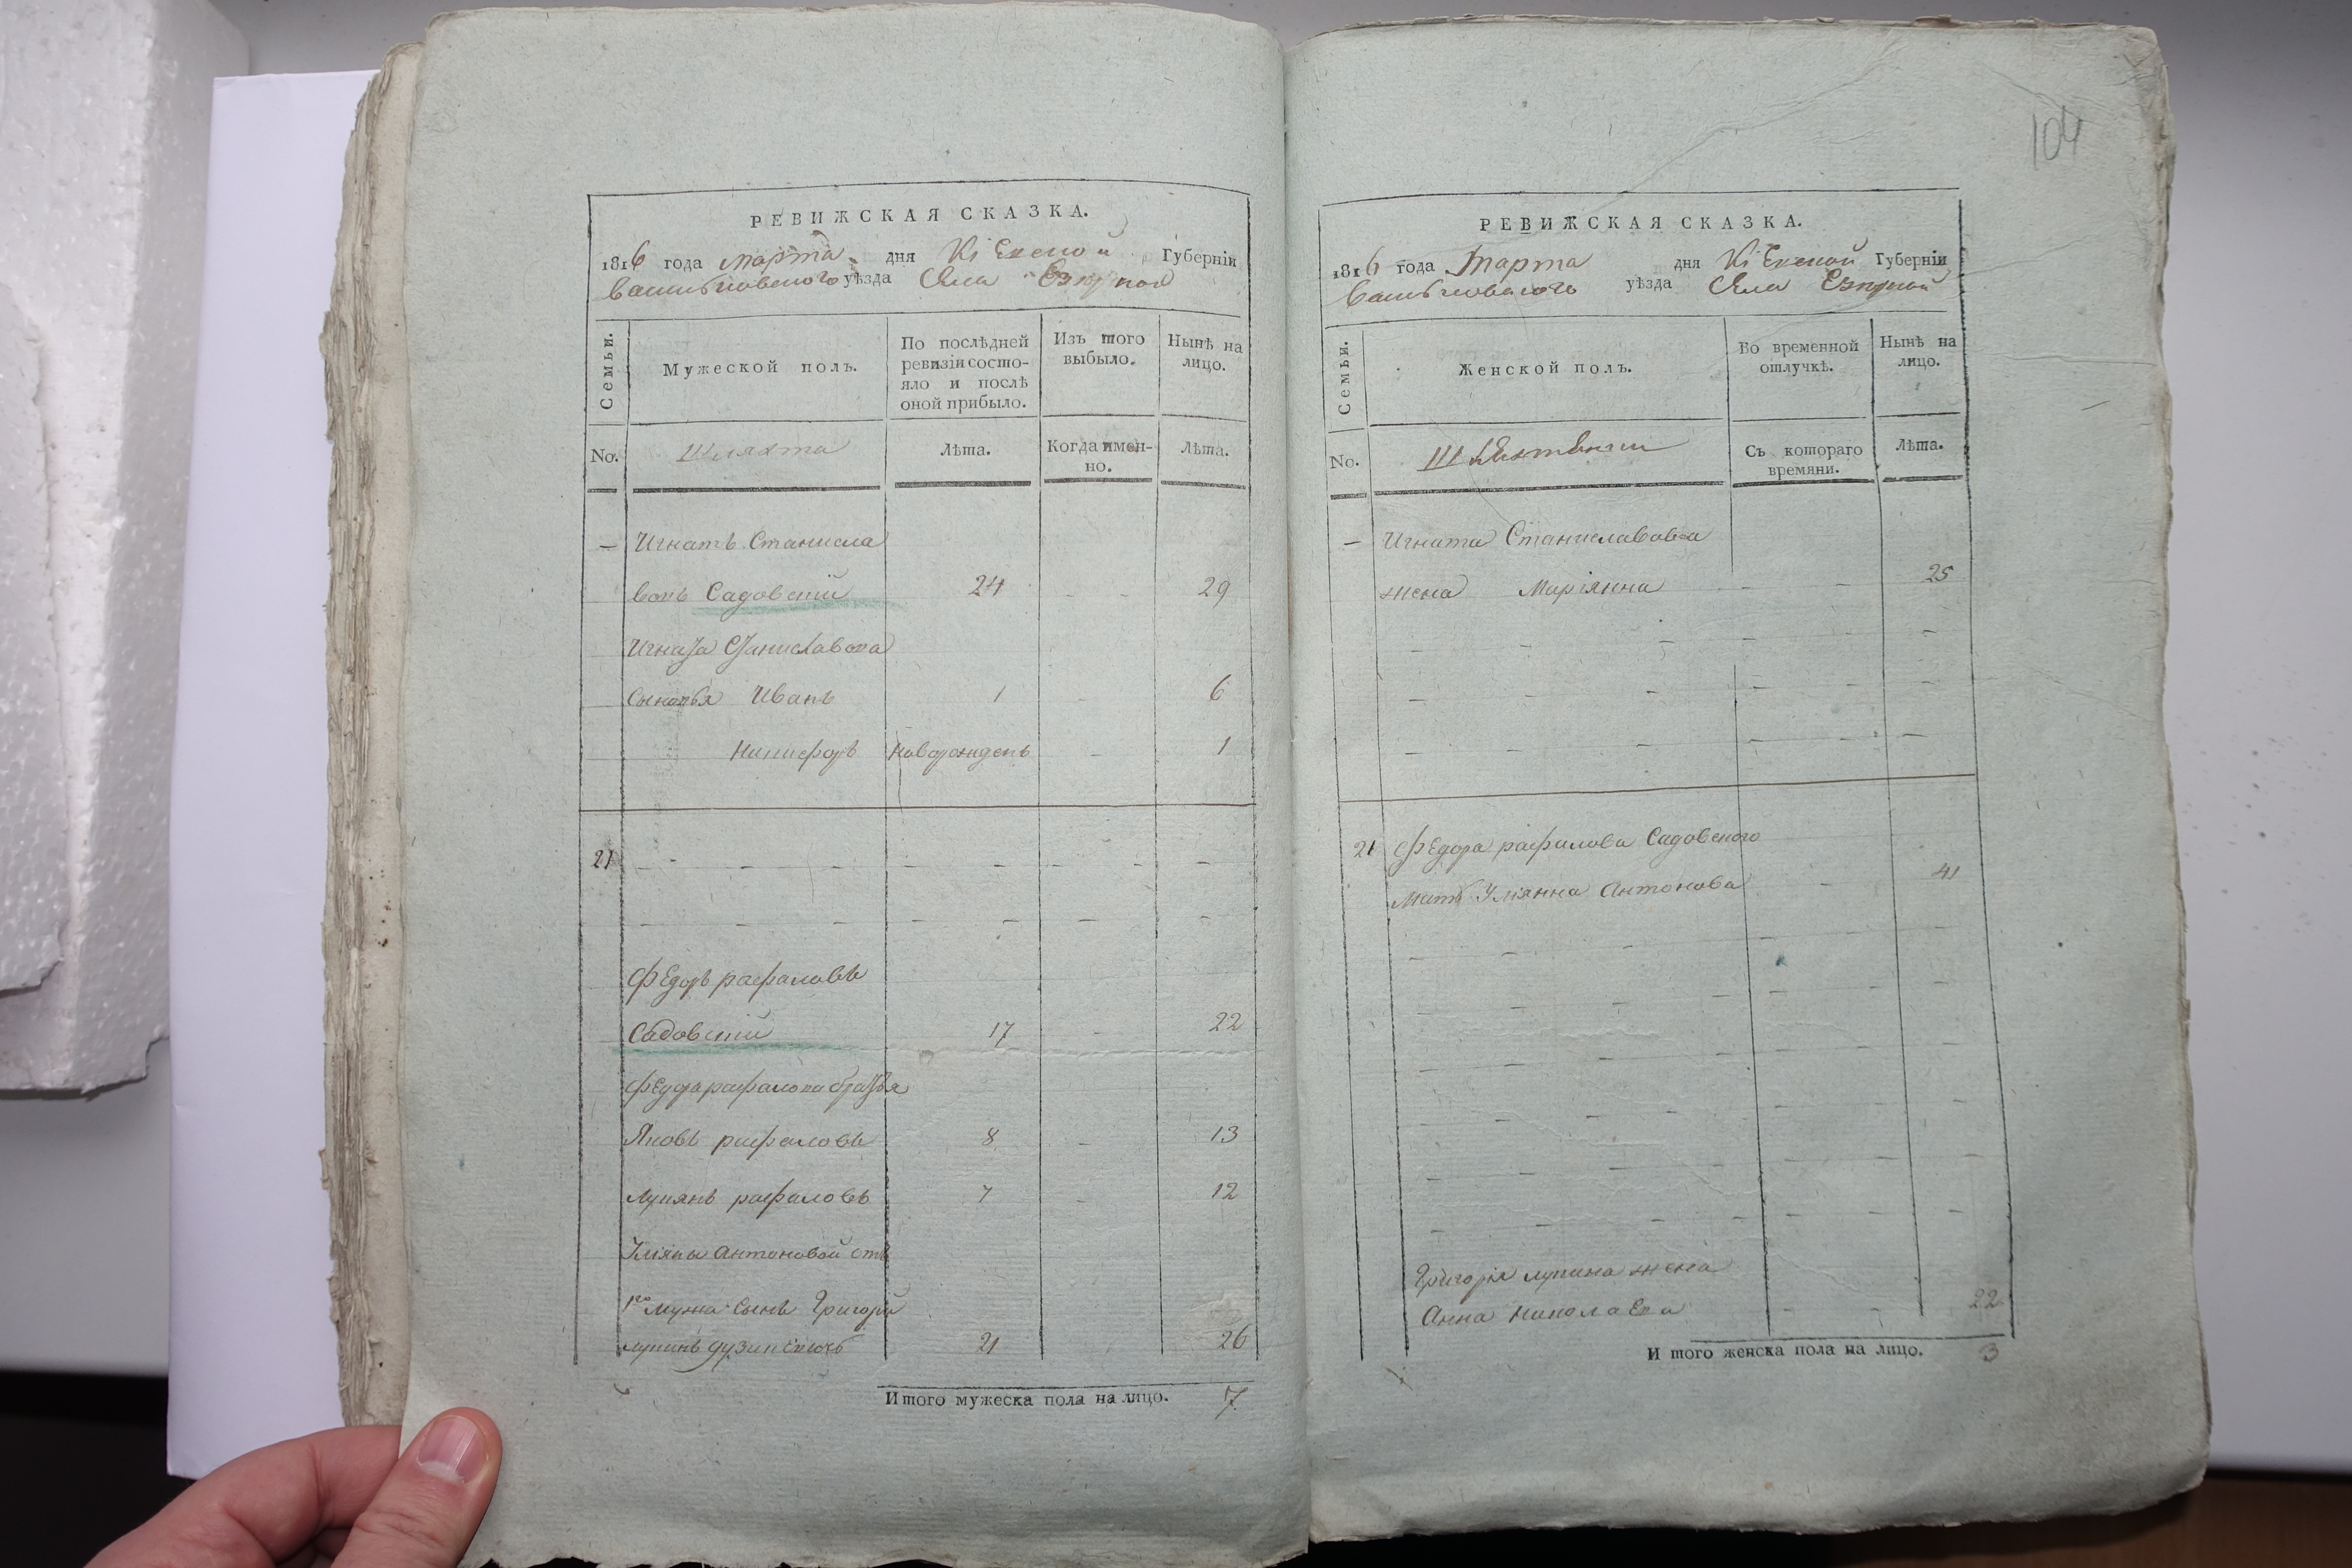 РЕВИЖСКАЯ СКАЗКА.
1816 года марта дня Кіевской Губерніи
Васильковского уѣзда Села Езерной
Семьи.
Мужеской полъ.
По послѣдней ревизіи состо-
яло и послѣ
оной прибыло.
Изъ того
выбыло.
Нынѣ на
лицо.
No.
Шляхта
Лѣта.
Когда имен-
но.
Лѣта.
— Игнатъ Станисла
вовъ Садовскій 24 - - 29
Игната Станиславова
сыновья Иванъ 1 - 6
Никифоръ новорожденъ - 1
21 - - - - - - - - -
- - - - - - -
Федоръ рафаловъ
Садовскій 17 - 22
Федора рафалова братья
Яковъ рафаловъ 8 - 13
Лукянъ рафаловъ 7 - 12
Уліяны Антоновой отъ
1го мужа сынъ Григорій
21 26
Итого мужеска пола на лицо. 7
104
РЕВИЖСКАЯ СКАЗКА.
1816 года Марта дня Кіевской Губерніи
Васильковского уѣзда Села Езерной
Семьи.
Женской полъ.
Во временной
отлучкѣ.
Нынѣ на
лицо.
No.
Шляхтянки
Съ котораго
времяни.
Лѣта.
— Игната Станиславова
жена Маріянна - - 25
- - - - -
- - - - -
- - - - -
21 Федора рафалова Садовского
Мать Уліянна Антонова - 41
Григорія лукина жена
Анна николаева - - 22
Итого женска пола на лицо. 3